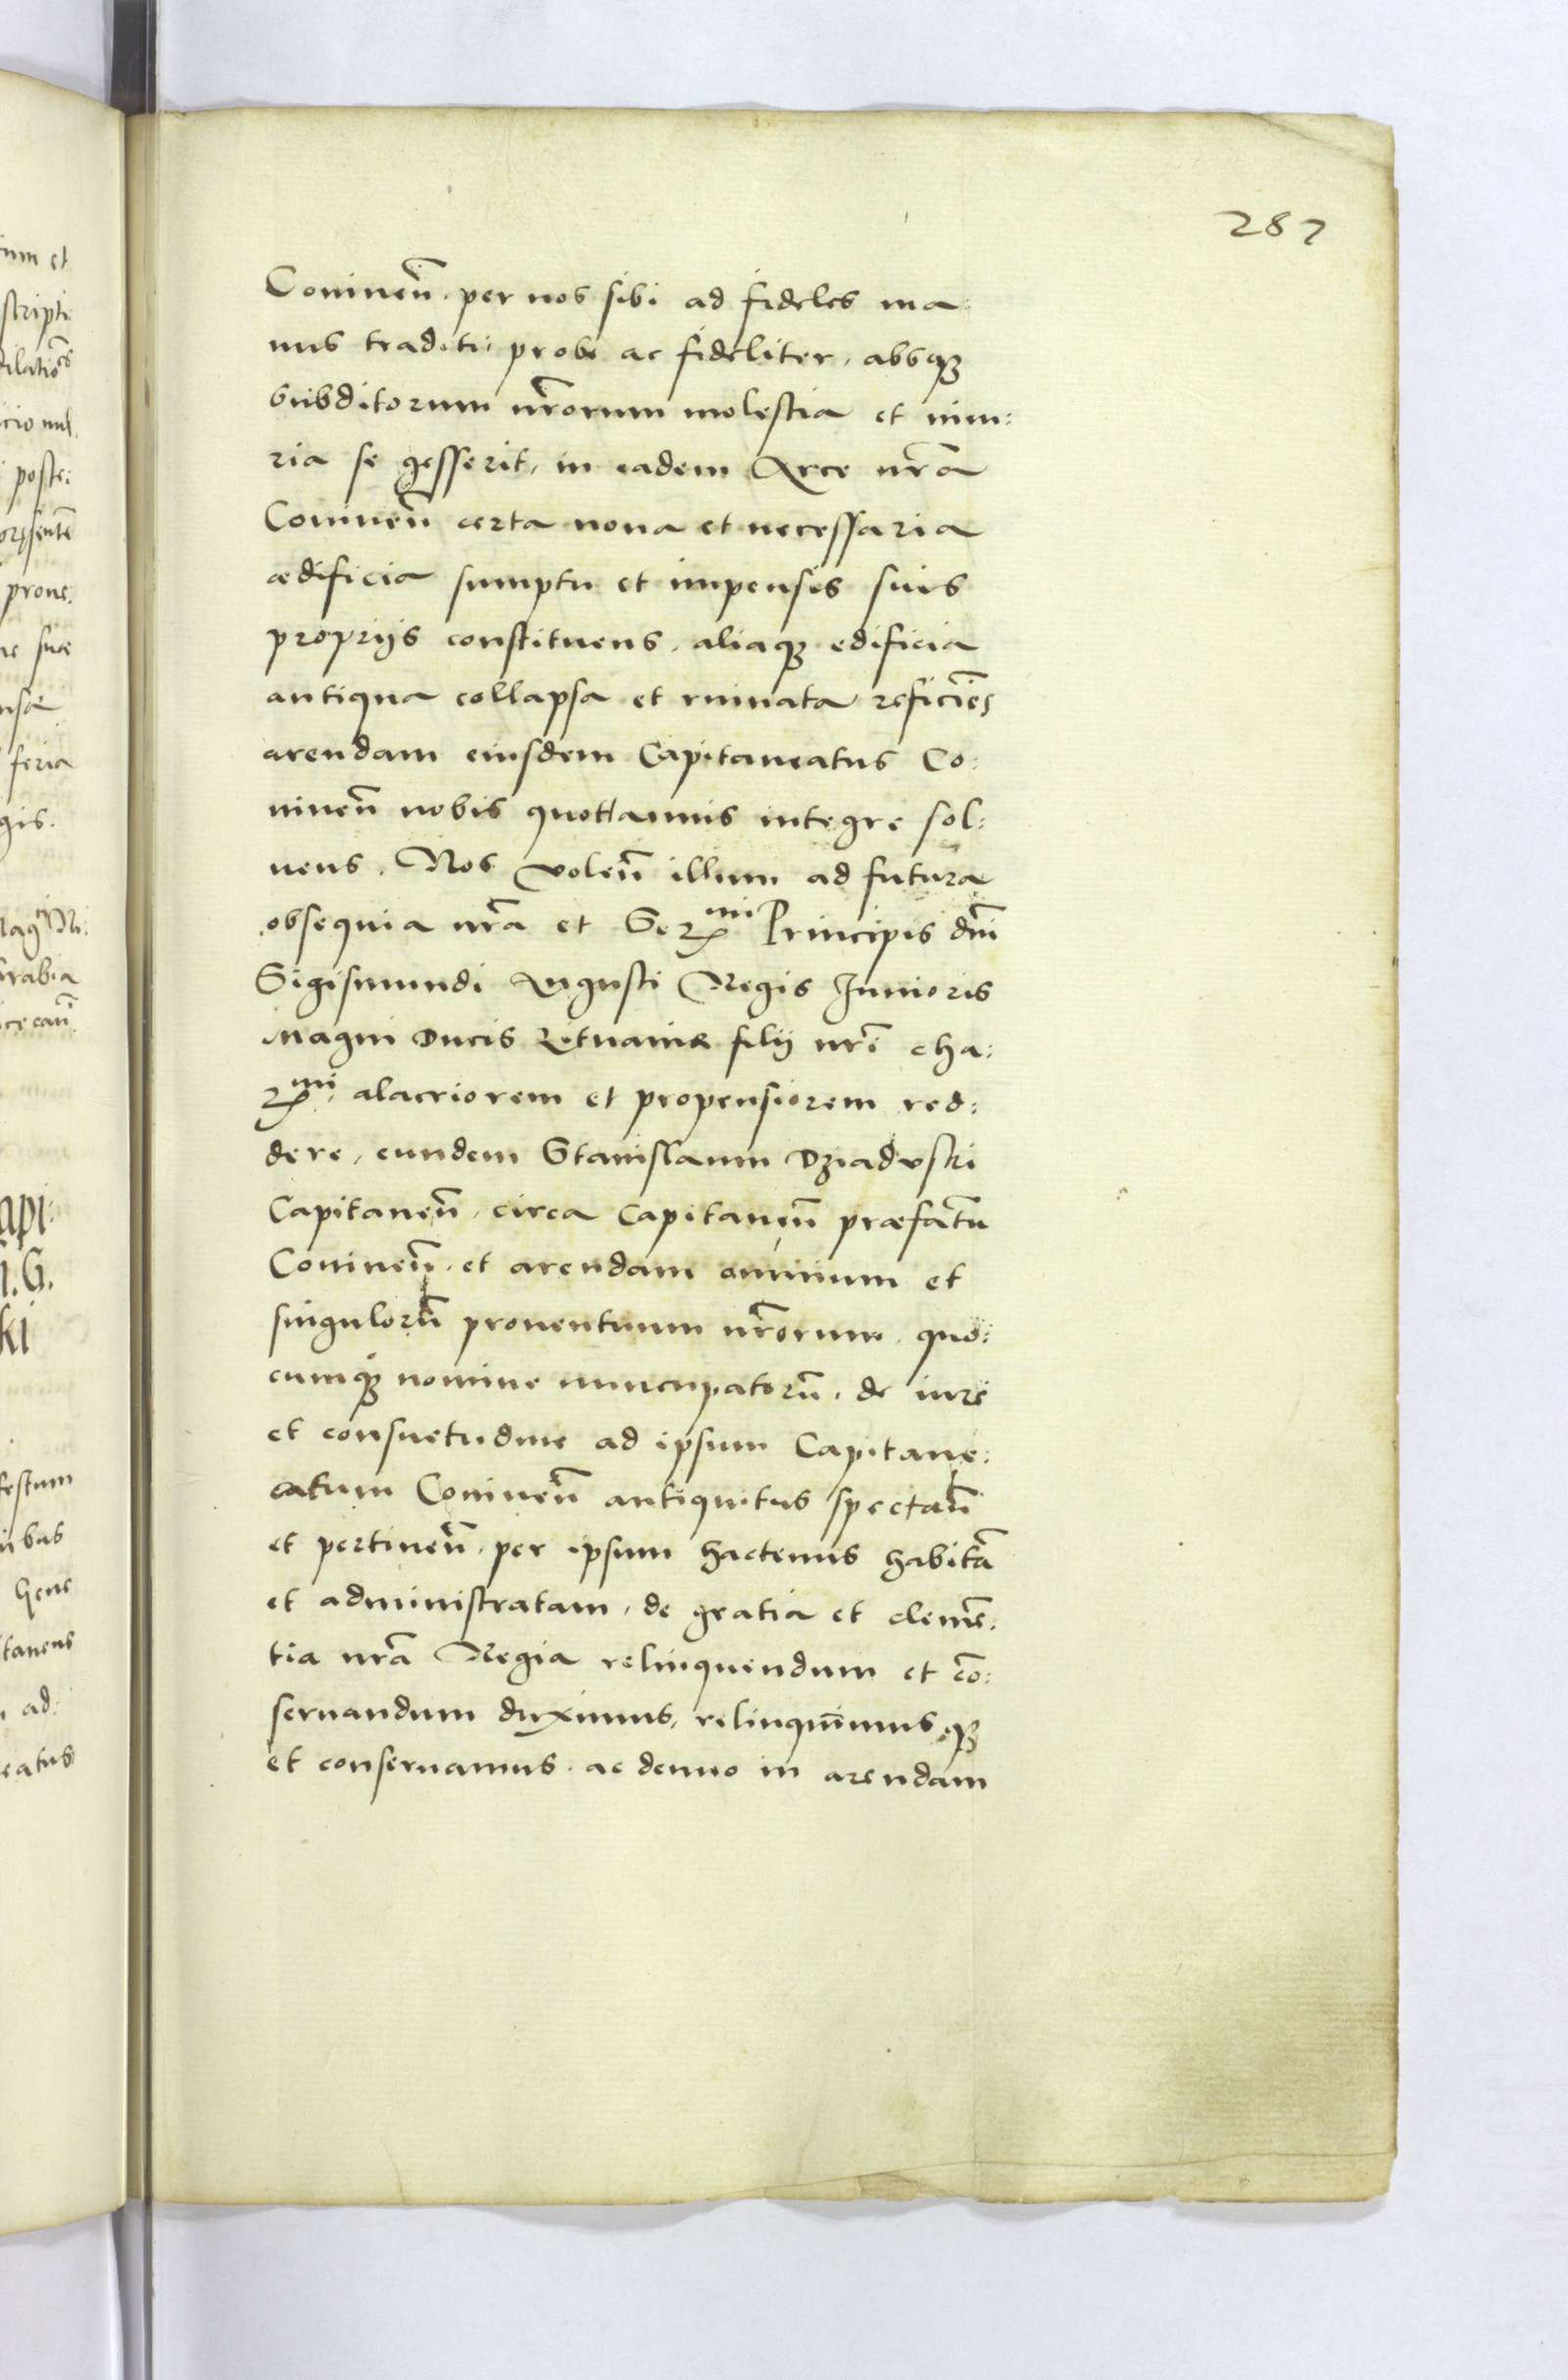 287
Coninen̄. per nos sibi ad fideles ma
nus traditi: probe ac fideliter, absq3
subditorum nr̄orum molestia et iniu:
ria se gesserit, in eadem Arce nr̄a
Coninen̄ certa noua et necessaria
ædificia sumptu et impensis suis
proprijs constituens, aliaq3 edificia
antiqua collapsa et ruinata reficiēs
arendam eiusdem Capitaneatus Co:
ninen̄ nobis quottannis integre sol:
uens. Nos volen̄ illum ad futura
obsequia nr̄a et Ser^mi Principis dn̄i
Sigismundi Augusti Regis Iunioris
Magni Ducis Lituaniæ filij nr̄i cha:
r^mi alacriorem et propensiorem red:
dere, eundem Stanislaum Dziaduski
Capitanen̄, circa Capitaneū præfatū
Coninen̄. et arendam omnium et
singulorū prouentuum nr̄orum, quo:
cumq3 nomine nuncupatorū, de iure
et consuetudine ad ipsum Capitane:
atum Coninen̄ antiquitus spectan̄
et pertinen̄. per ipsum hactenus habitā
et administratam, de gratia et clemē:
tia nr̄a Regia relinquendum et cō:
seruandum duximus, relinquimusq3
et conseruamus. ac denuo in arendam